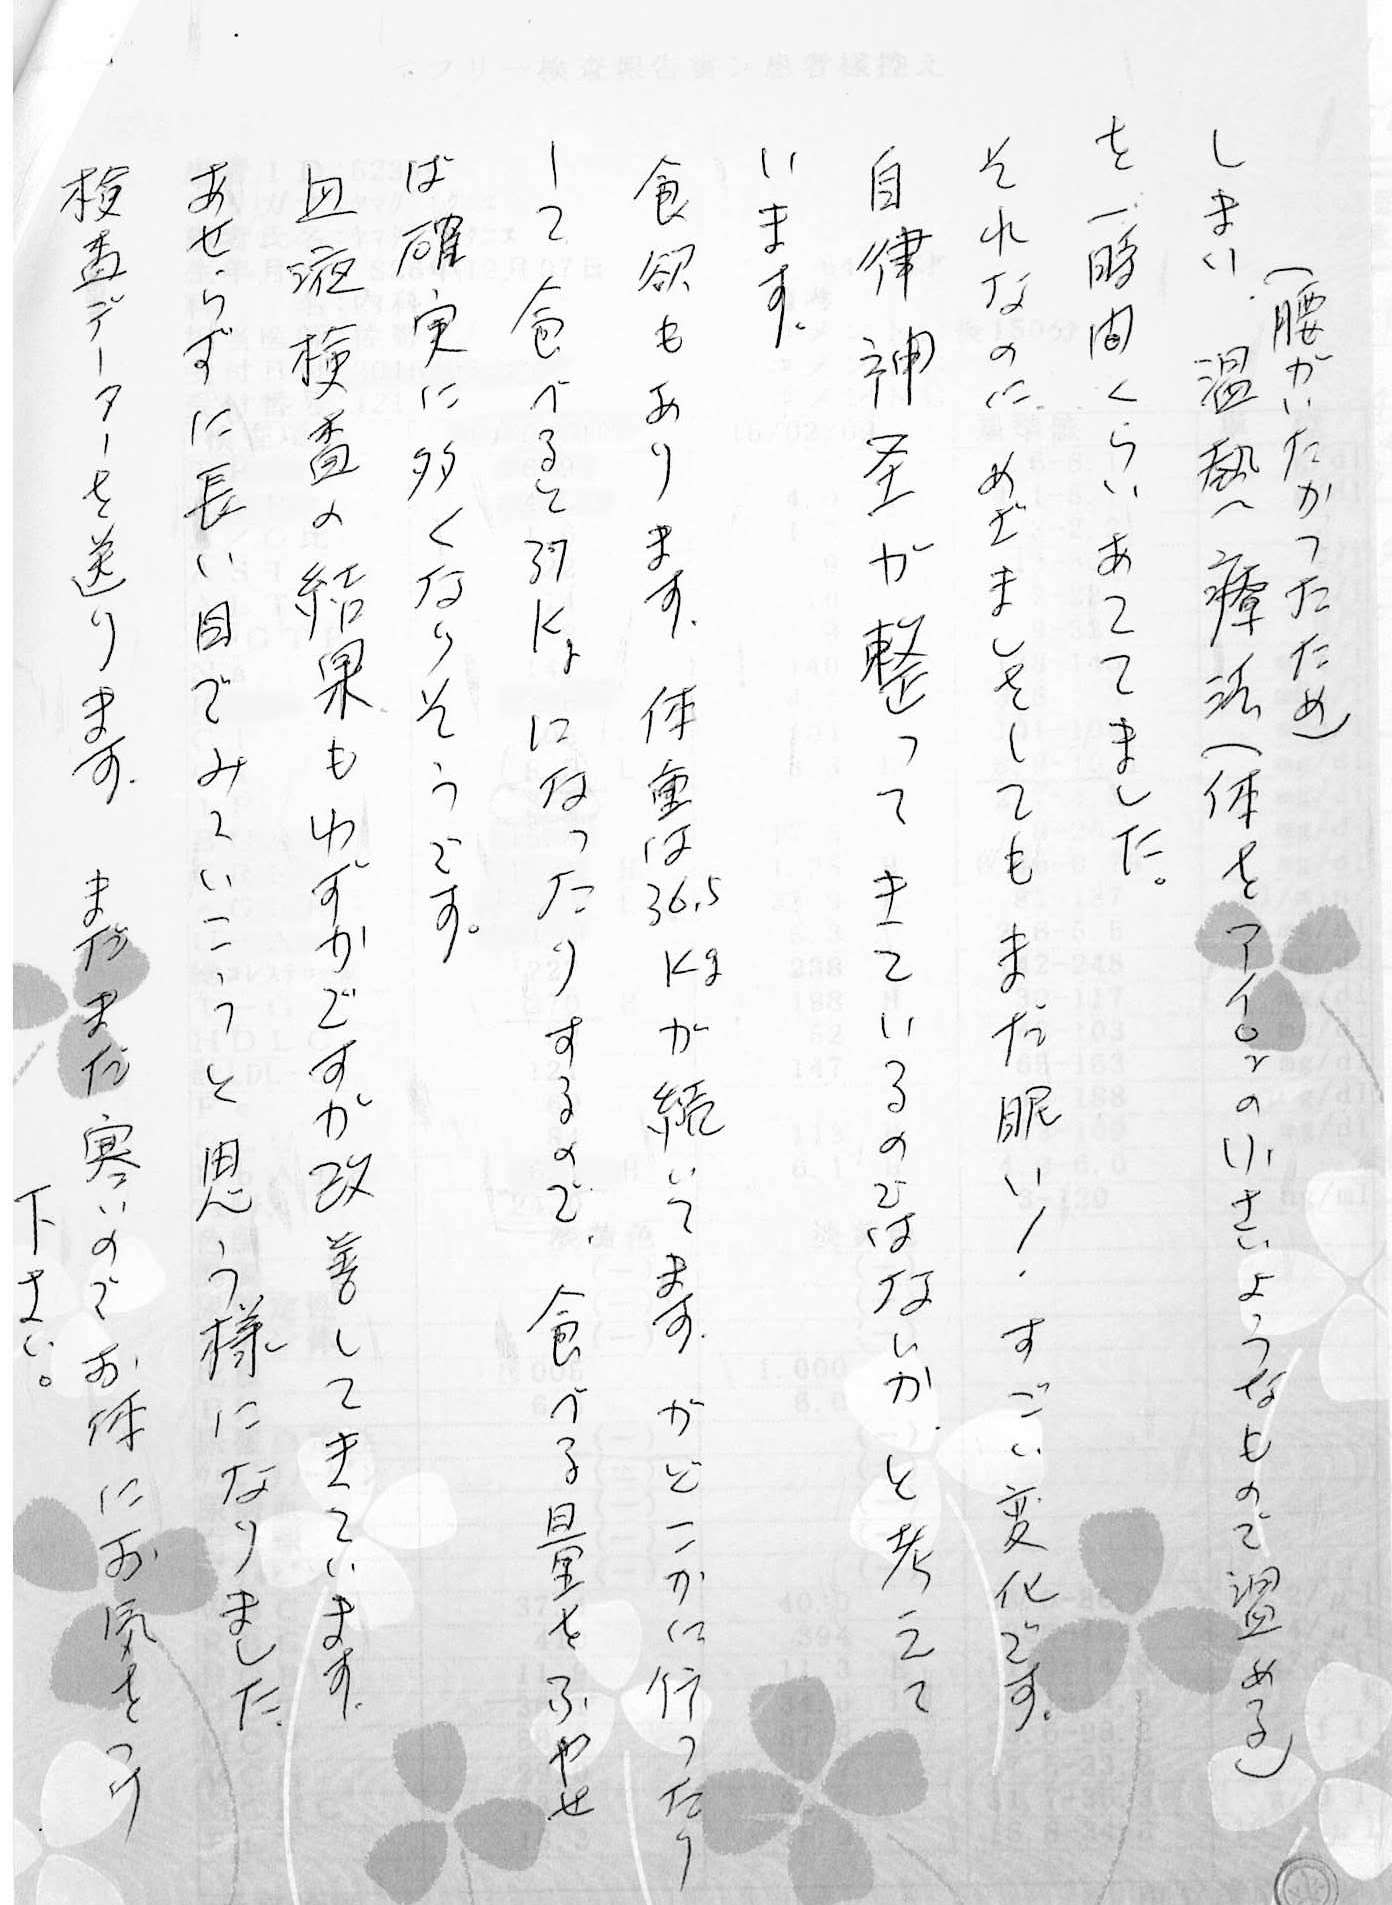 (腰がいたかったため)
しまい、温熱療法(体をアイロンの小さいようなもので温める)
を一時間くらいあててました。
それなのに、めざましをしてもまだ眠い!すごい変化です。
自律神圣が整ってきているのではないか、と考えて
います。
食欲もあります。体重は36.5Kgが続いてます。がどこかに行ったり
して食べると37Kgになったりするので、食べる量をふやせ
ば確実に多くなりそうです。
血液検査の結果もわずかですが改善してきています。
あせらずに長い目でみていこうと思う様になりました。
検査データーを送ります。まだまだ寒いのでお体にお気をつけ
下さい。